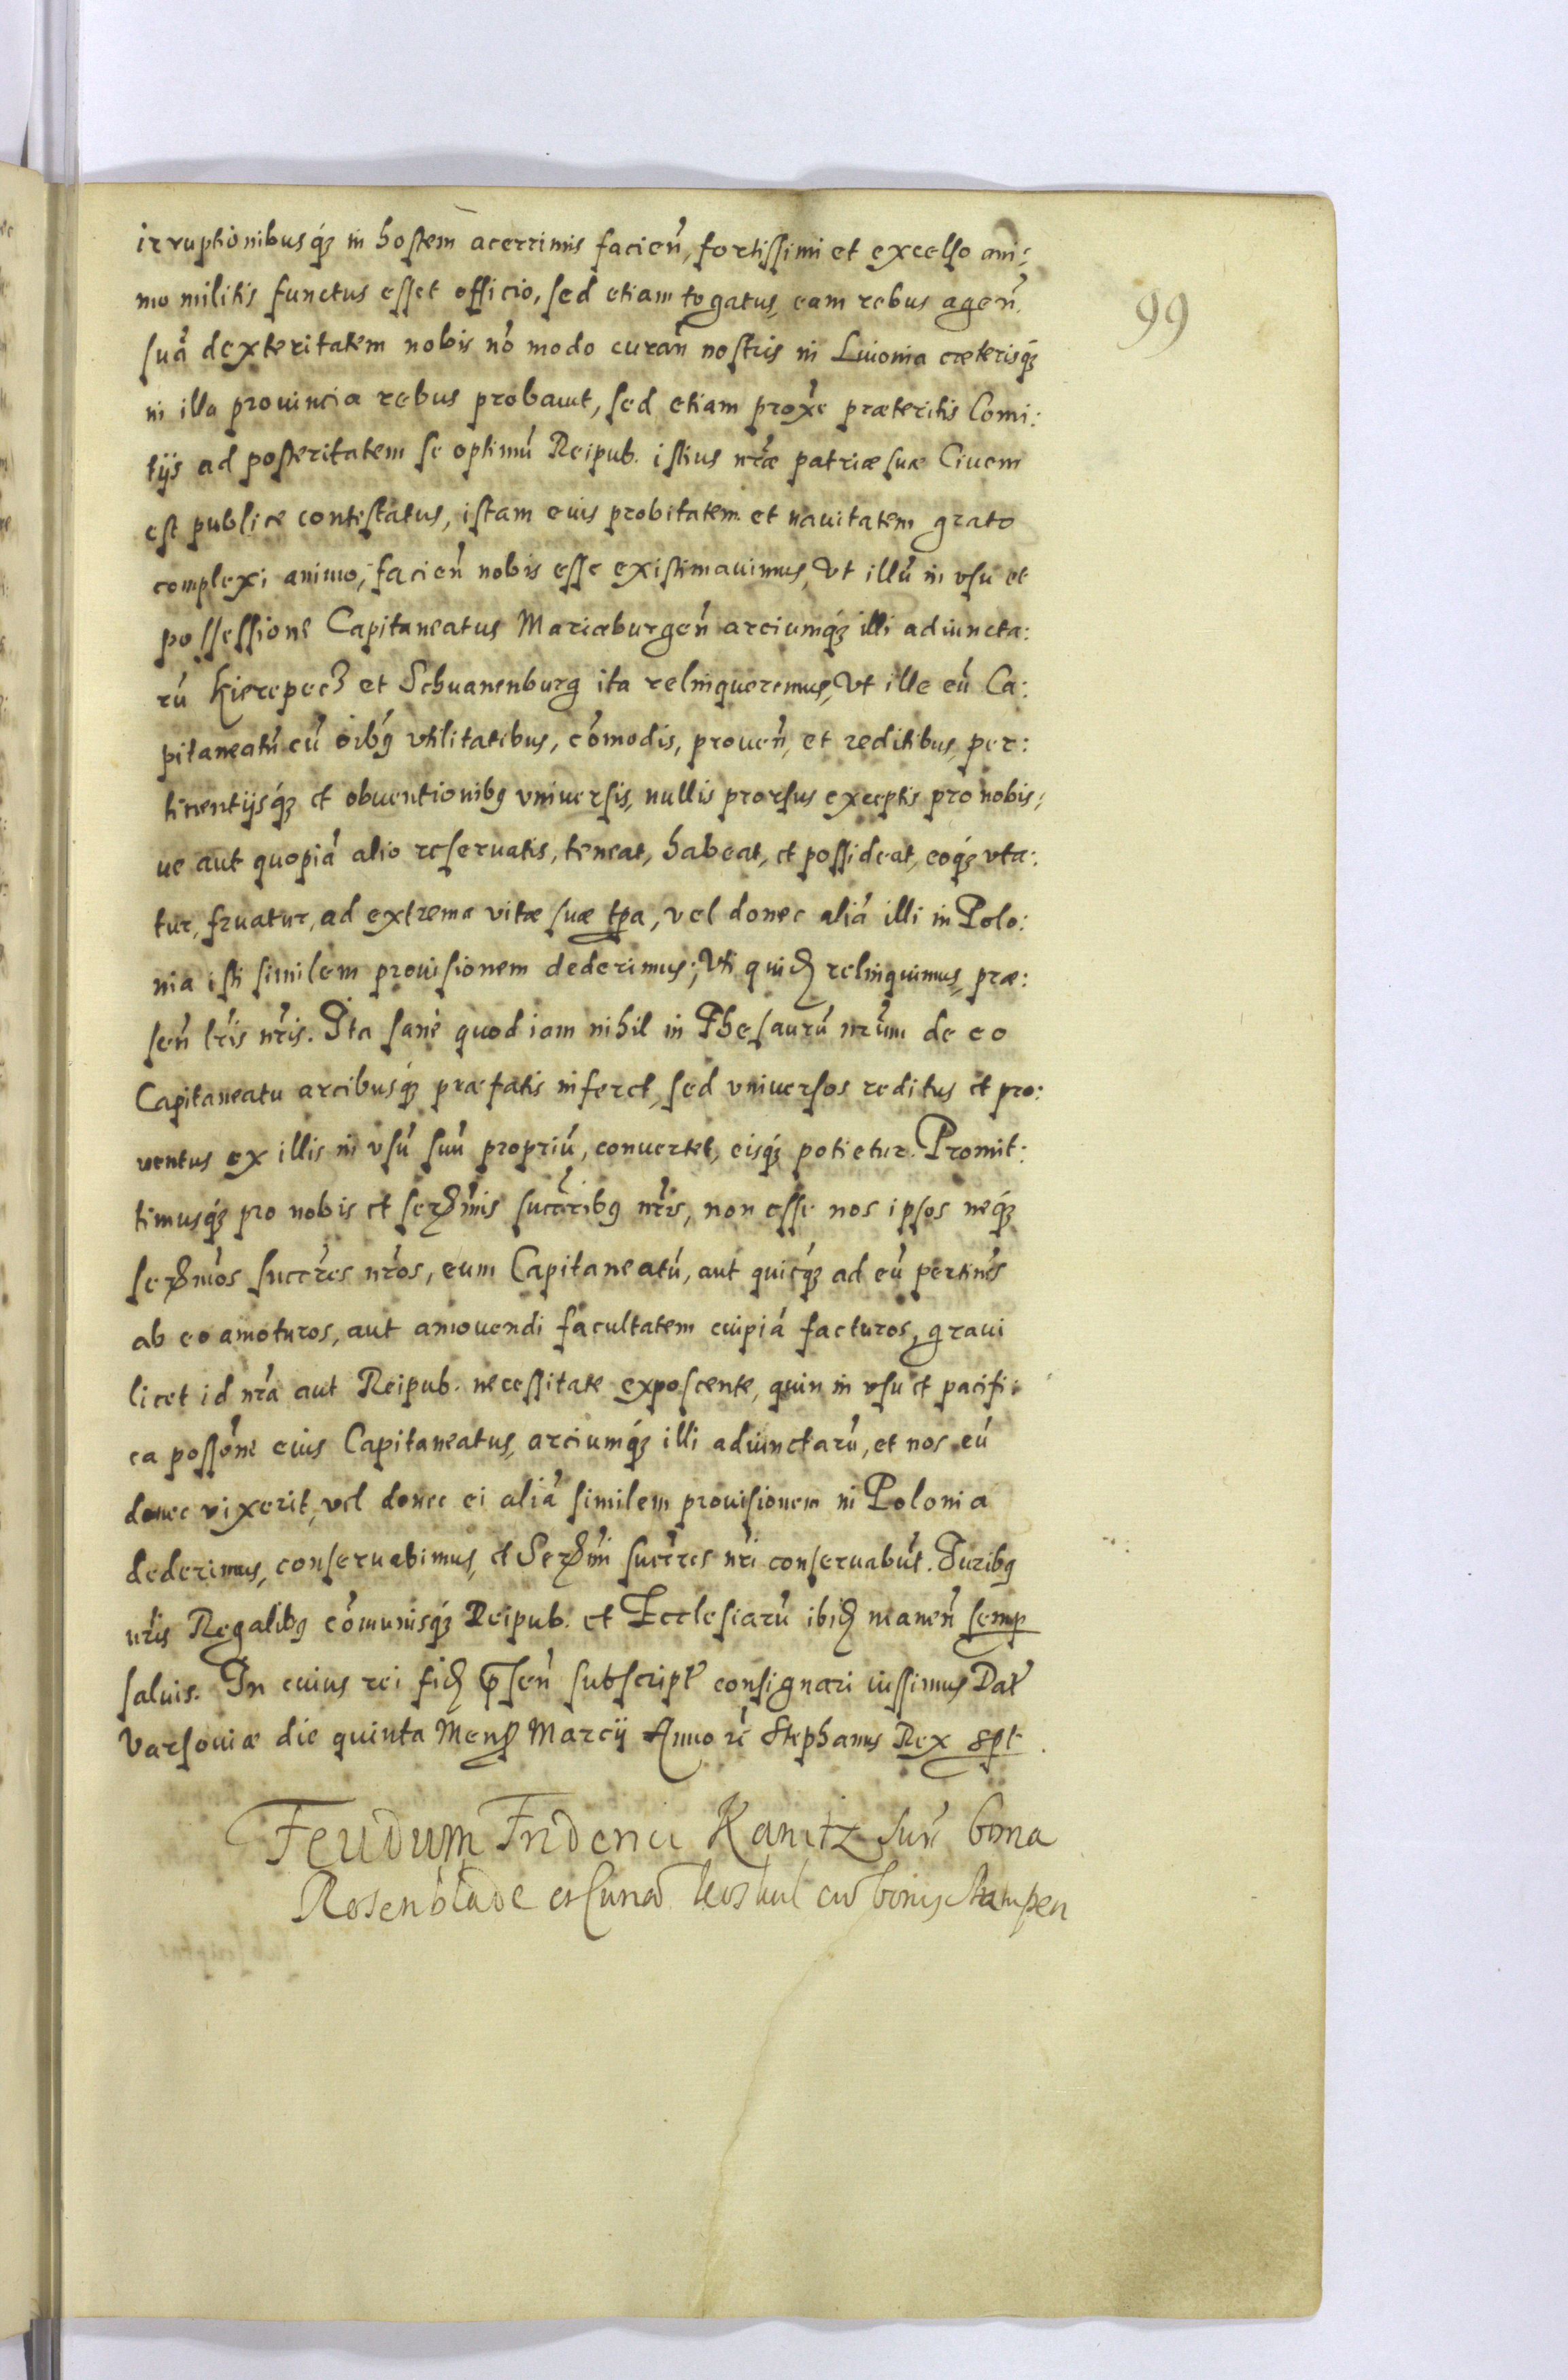 irruptionibusq́ȝ in hostem acerrimis facień, fortissimi et excelso ani:
mo militis functus esset officio, sed etiam togatus, eam rebus ageń
suá dexteritatem nobis nó modo curań nostris in Liuonia cæterisq́ȝ
in illa prouincia rebus probauit, sed etiam proxe præteritis Comi:
tijs ad posteritatem se optimú Reipub. istius nræ patriæ suæ Ciuem
est publice contestatus, istam euis probitatem et nauitatem grato
complexi animo, facień nobis esse existimauimus, Vt illú in vsu et
possessione Capitaneatus Mariæburgeń arciumq́ȝ illi adiuncta:
rú Kierepecȝ et Schuanenburg ita relinqueremus, Vt ille eú Ca:
pitaneatú cú oibꝰ vtilitatibus, cómodis, proueń, et reditibus, per:
tinentijsq́ȝ et obuentionibꝰ vniuersis, nullis prorsus exceptis pro nobis:
ue aut quopiá alio reseruatis, teneat, habeat, et possideat, eoq́ȝ vta:
tur, fruatur, ad extrema vitæ suæ tpa, vel donec aliá illi in Polo:
nia isti similem prouisionem dederimus; Vti quidꝫ relinquimus, præ:
seń lris nris. Ita sané quod iam nihil in Thesaurú nrum de eo
Capitaneatu arcibusq́ȝ præfatis inferet, sed vniuersos reditus et pro:
uentus ex illis in vsú suú propriú, conuertet, eisq́ȝ potietur. Promit:
timusq́ȝ pro nobis et serꝫmis succribꝰ nris, non esse nos ipsos neq́ȝ
serꝫmos succres nros, eum Capitaneatú, aut quicq́ȝ ad eú pertinés
ab eo amoturos, aut amouendi facultatem cuipiá facturos, graui
licet id nrá aut Reipub. necessitate exposcente, quin in vsu et pacifi:
ca possóne eius Capitaneatus, arciumq́ȝ illi adiunctarú, et nos eú
donec vixerit, vel donec ei aliá similem prouisionem in Polonia
dederimus, conseruabimus, et Serꝫmi succres nri conseruabút. Iuribꝰ
nris Regalibꝰ cómunisq́ȝ Reipub. et Ecclesiarú ibidꝫ maneń semp
saluis. In cuius rei fidꝫ pseń subscript consignari iussimus Dat
Varsouiæ die quinta Mens Marcij Anno ré Stephanus Rex spt.
Feudum Friderici Kanitz suń bona
Rosenblade et cum bonis
99